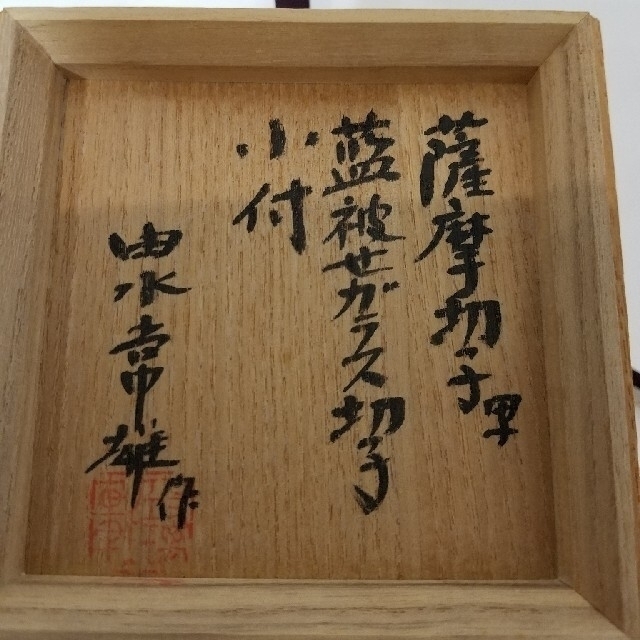 薩摩切子写
藍被せガラス切子
小付
由水常雄作